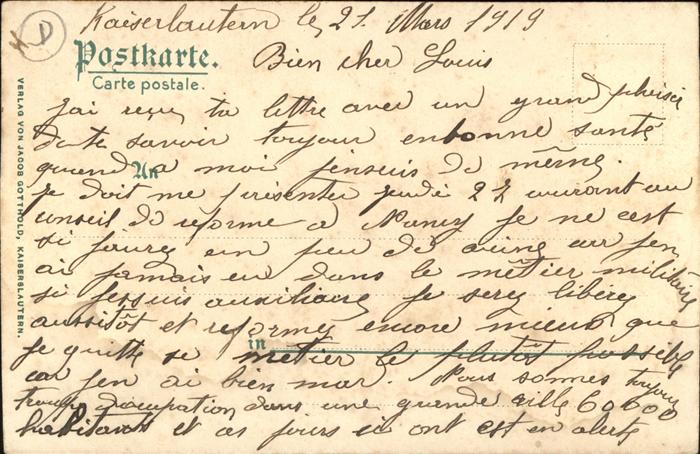 D
Kaiserlautern le, 21 Mars 1919
Postkarte.
Carte postale.
Bien cher Louis
J'ai reçu ta lettre avec un grand plaisir
de te savoir toujour en bonne santé
quand a moi jensuis de même.
An
Je doit me présenter jeudi 27 courant au
conseil de reforme a Nancy Je ne c'est
si j'aurez un peu de veine car j'en
ai jamais eu dans le métier militaire
si jessuis auxiliaire je serez libérez
aussitôt et reformez encore mieux que
in
je quitte se metier le plutôt possible
car j'en ai bien mar. Nous sommes toujour
troupe d'occupation dans une grande ville 60000
habitants et ces jours ci ont est en alerte
VERLAG VON JACOB GOTTHOLD, KAISERSLAUTERN.